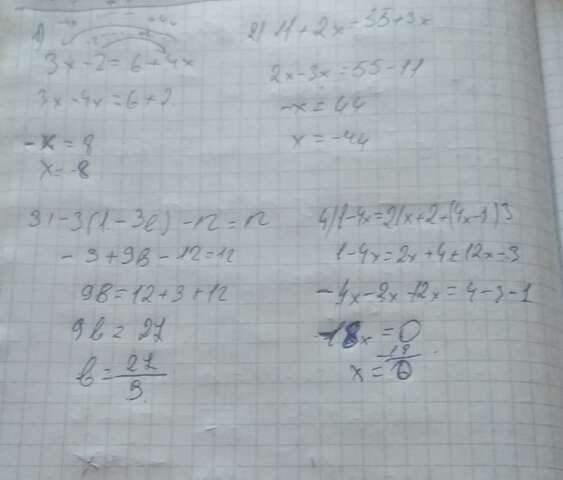 1)
3x-2=6+4x
3x-4x=6+2
-x=8
x=-8
2) 11+2x=55+3x
2x-3x=55-11
-x=44
x=-44
3) -3(1-3в)-12=12
-3+9в-12=12
9в=12+3+12
9в=27
в=27/9
4) 1-4x=2(x+2)+(4x-1)3
1-4x=2x+4+12x-3
-4x-2x-12x=4-3-1
-18x=0
x=0